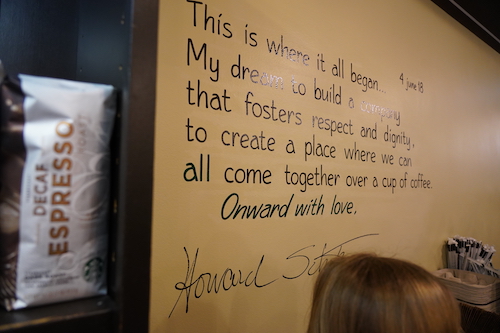 This is where it all began...
4 june 18
My dream to build a company
that fosters respect and dignity,
to create a place where we can
all come together over a cup of coffee.
Onward with love,
Howard
DECAF
ESPRESSO